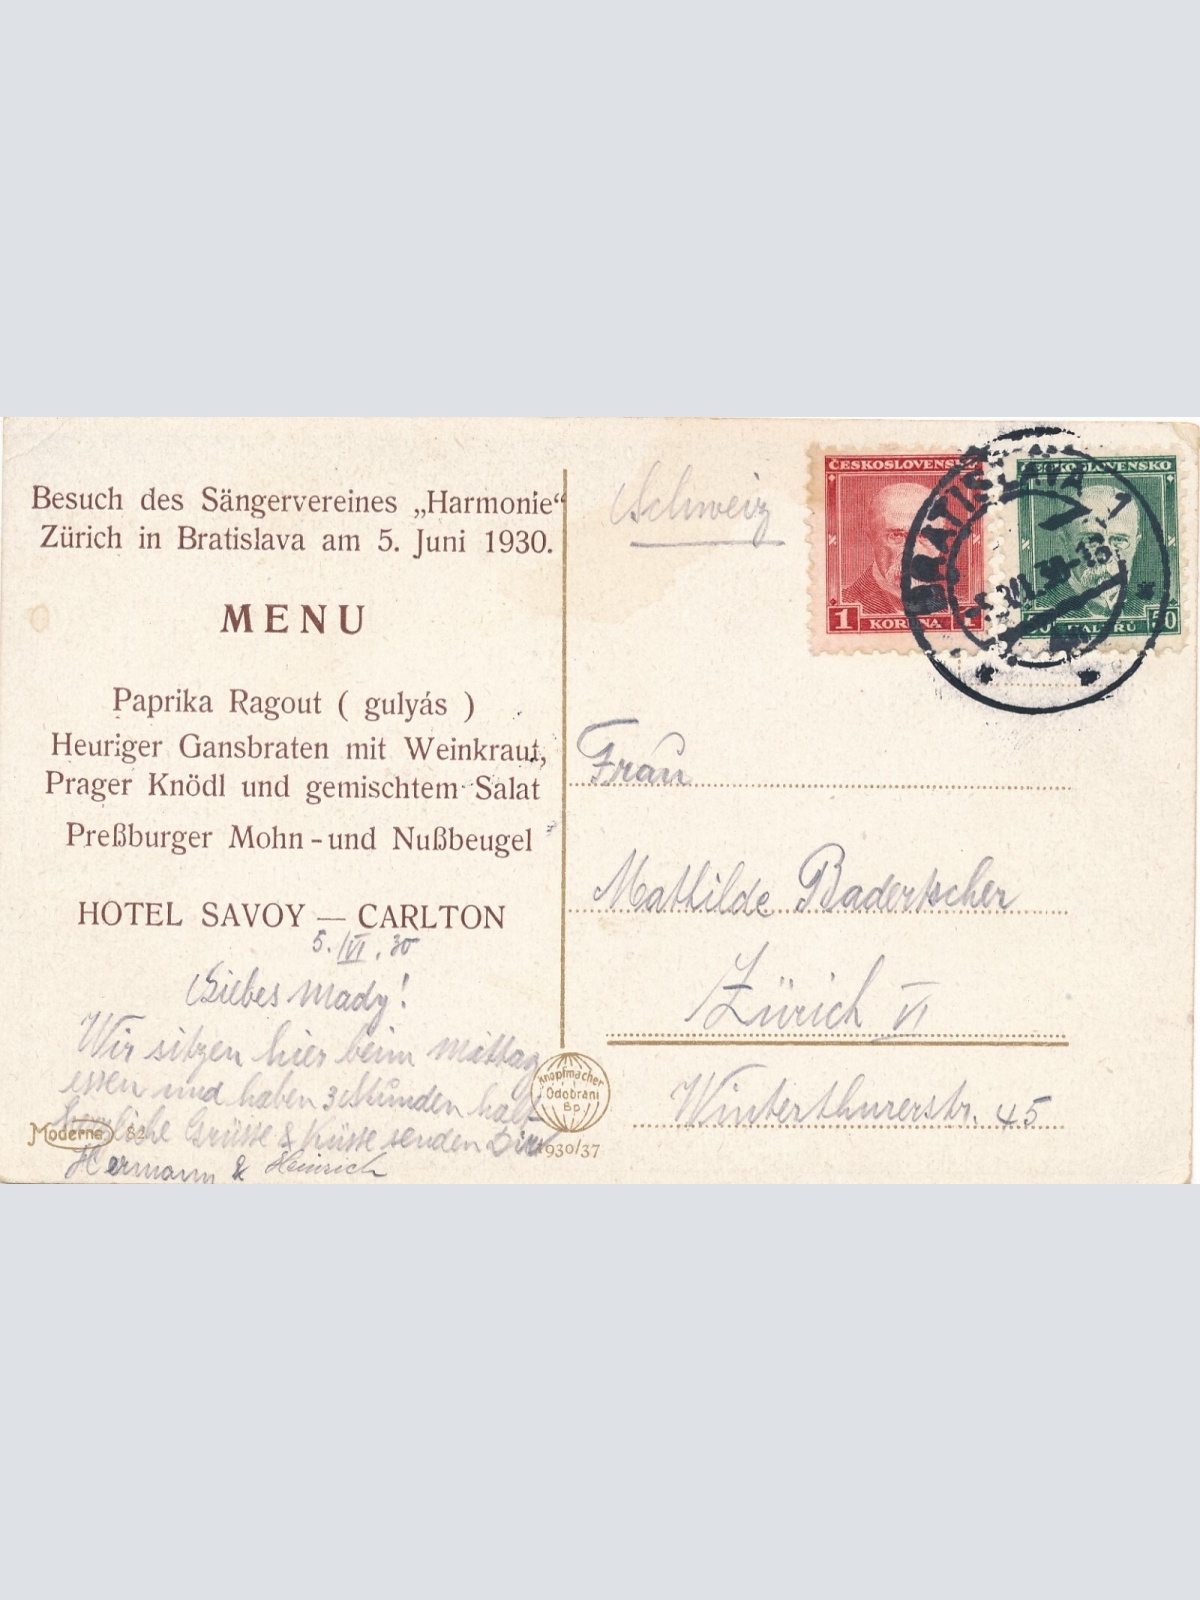 Besuch des Sängervereines „Harmonie“
Zürich in Bratislava am 5. Juni 1930.
MENU
Paprika Ragout ( gulyás )
Heuriger Gansbraten mit Weinkraut,
Prager Knödl und gemischtem Salat
Preßburger Mohn - und Nußbeugel
HOTEL SAVOY — CARLTON
5. VI. 30
Liebes Mady!
Wir sitzen hier beim Mittag
essen und haben 3 Stunden halt
Herzliche Grüsse & Küsse senden Dir
Hermann & Heinrich
Moderne
Knopfmacher
Odobrani
Bp.
1930/37
Schweiz
ČESKOSLOVENSKO
1 KORUNA 1
ČESKOSLOVENSKO
50 HALÉŘŮ 50
BRATISLAVA 1
Frau
Mathilde Badertscher
Zürich VI
Winterthurerstr. 45